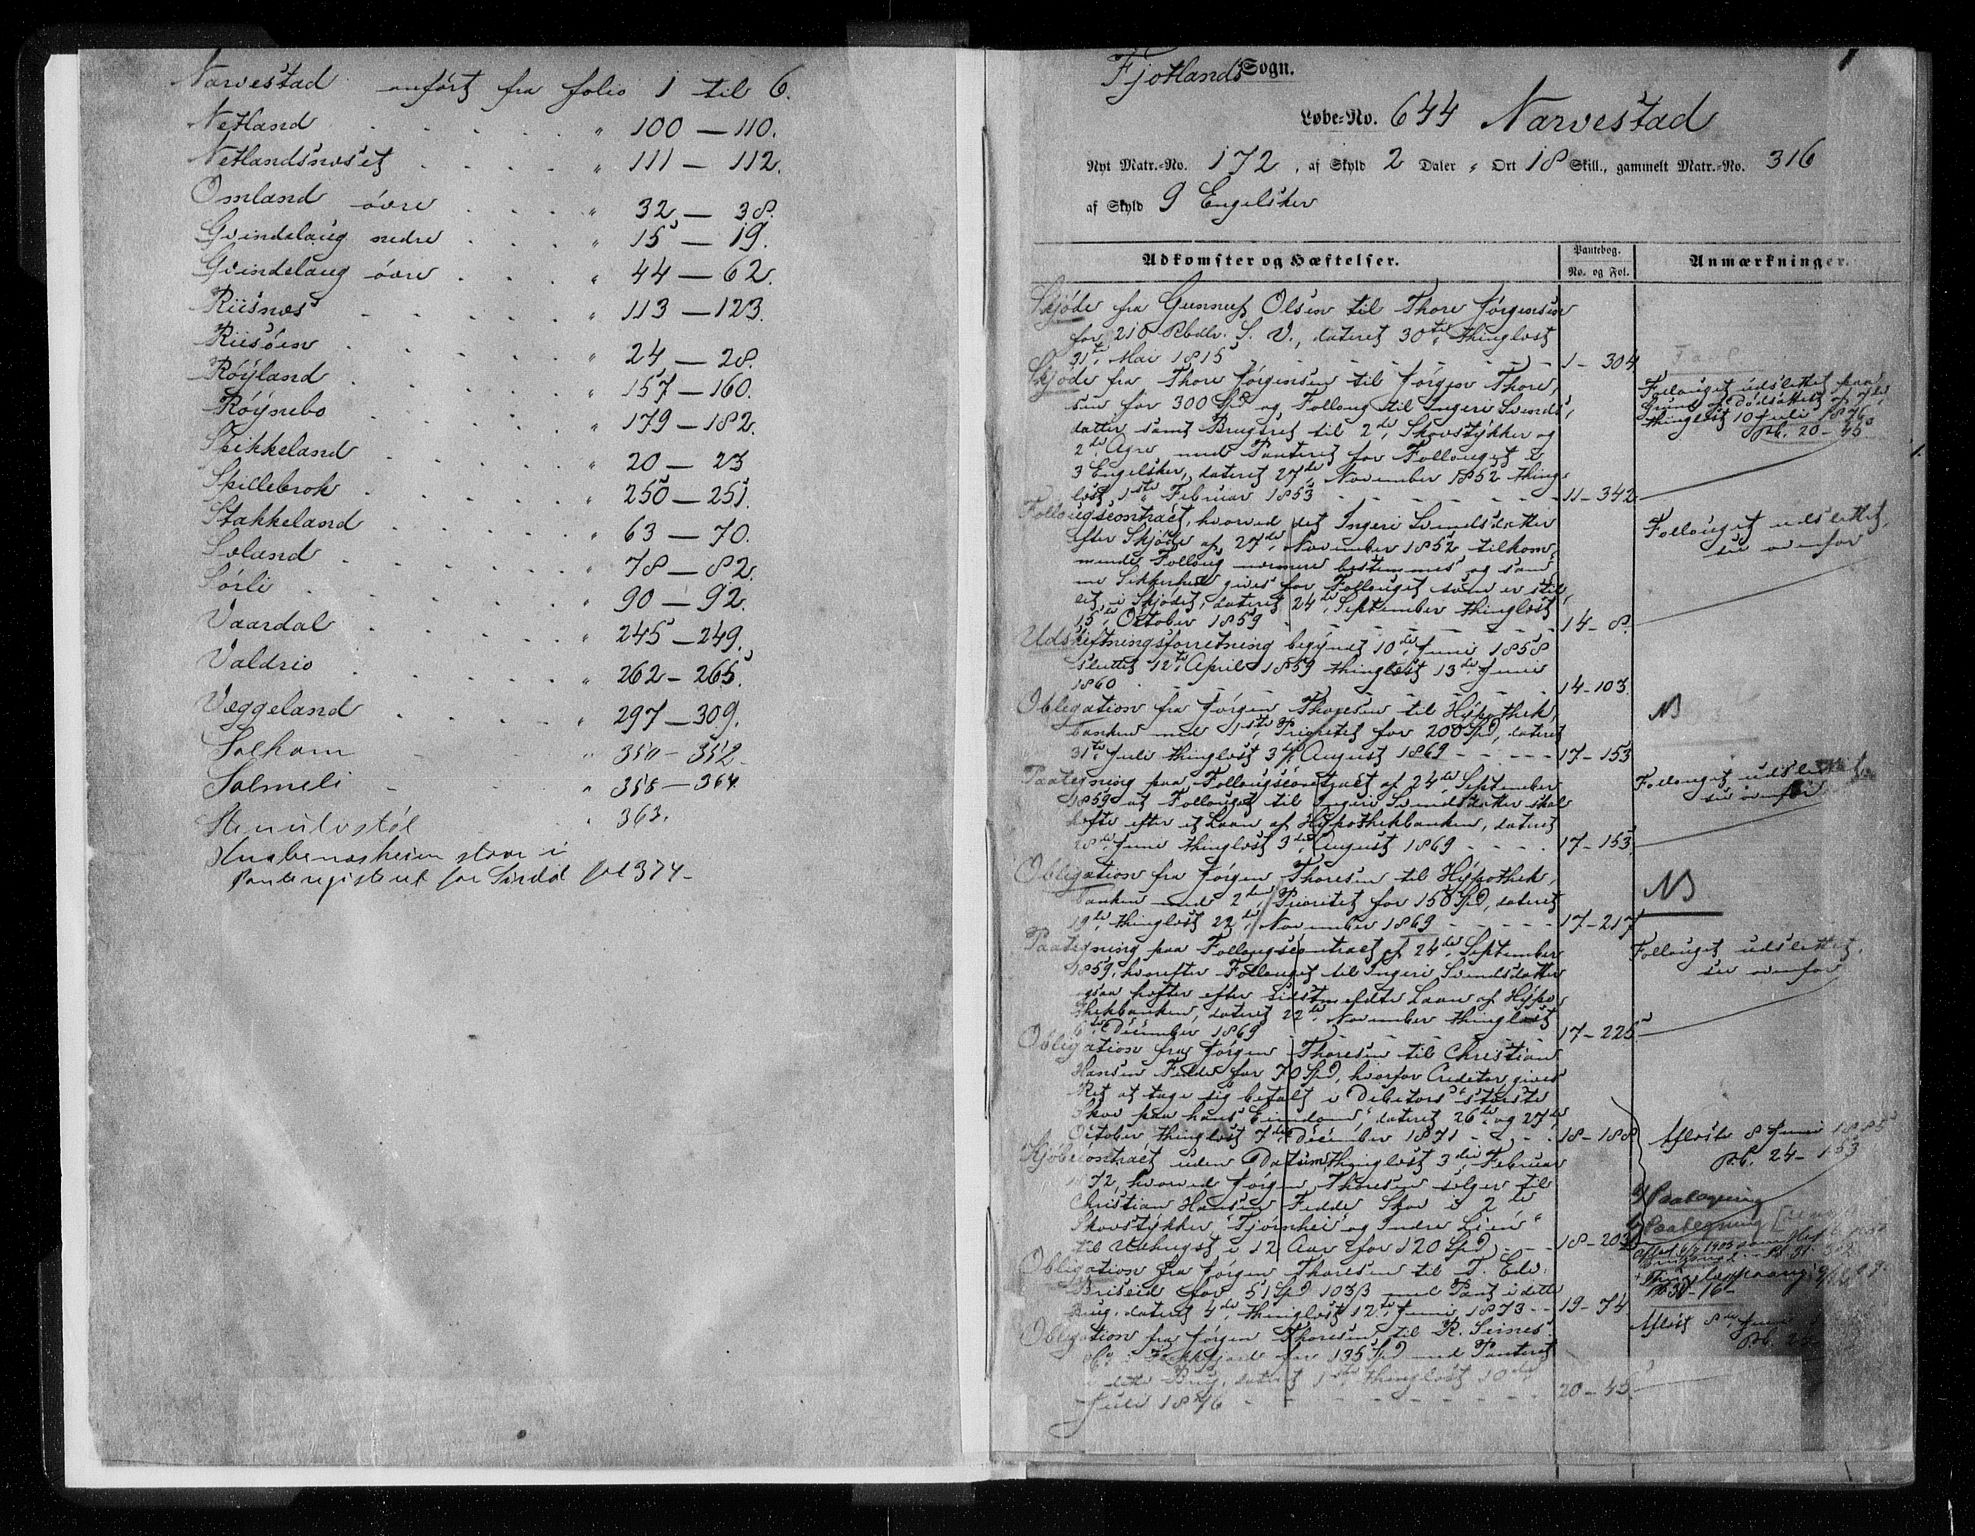 Narvestad anført fra folio 1 til 6.
Netland . . . . . " 100 — 110.
Netlandsnæset . . . . " 111 — 112.
Omland øvre . . . . " 32 — 38.
Gvindslaug nedre . . . . " 15 — 19.
Gvindslaug øvre . . . " 44 — 62.
Riisnæs . . . . . " 113 — 123.
Riisøen . . . . . " 24 — 28.
Røyland . . . . . " 157 — 160.
Røynebo . . . . . " 179 — 182.
Skikkeland . . . . . " 20 — 23
Skillebrok . . . . . " 250 — 251.
Stakkeland . . . . . " 63 — 70.
Soland . . . . . " 78 — 82.
Sørli . . . . . " 90 — 92.
Vaardal . . . . . " 245 — 249.
Valdrio . . . . . " 262 — 265.
Veggeland . . . . . " 297 — 309.
Solhom " 350 — 352.
Solmeli " 358 — 364.
" 363.
staar i
Panteregistret for Sirdal fol 374-
1
Fjotlands Sogn.
Løbe-No. 644 Narvestad
Nyt Matr.-No. 172, af Skyld 2 Daler " Ort 18 Skill., gammelt Matr.-No. 316
af Skyld 9 Engelsker
Adkomster og Hæftelser.
Pantebog.
No. og Fol.
Anmærkninger.
Skjøde fra Gunnuf Olsen til Thore Jørgensen
for 210 Rbdlr. S. V., dateret 30te, thinglæst
31te Mai 1815 - - - 1 - 304
Skjøde fra Thore Jørgensen til Jørgen Thore-
sen for 300 Spd og Follaug til Ingeri Svends-
datter samt Brugsret til 2de Skovstykker og
2de Agre med Panteret for Follauget i
3 Engelsker, dateret 27de November 1852 thing-
læst 1ste Februar 1853 - - - 11 - 342
Follauget udslettet paa
Grund af Dødsattest af
thinglæst 10 Juli 1876
Pb. 20 - 45
Follaugscontract, hvorved det Ingeri Svendsdatter
efter Skjøde af 27de November 1852 tilkom-
mende Follaug nærmere bestemmes og sam-
me Sikkerhed gives for Follauget som er stil-
let i Skjødet, dateret 24de September thinglæst
15de October 1859 - - - 14 - 8.
Follauget udslettet,
see ovenfor
Udskiftningsforretning begyndt 10de Juni 1858
sluttet 12te April 1859 thinglæst 13de Juni
1860 - - - 14 - 103.
Obligation fra Jørgen Thoresen til Hypothek-
banken med 1ste Prioritet for 200 Spd, dateret
31te Juli thinglæst 3de August 1869 - - - 17 - 153
NB
Paategning paa Follaugscontract af 24de September
1859 at Follauget til Ingeri Svendsdatter skal
hefte efter et Laan af Hypothekbanken, dateret
28de Juni thinglæst 3de August 1869 - - - 17 - 153.
Follauget udslettet,
see ovenfor
Obligation fra Jørgen Thoresen til Hypothek-
banken med 2den Prioritet for 150 Spd, dateret
19de thinglæst 22de November 1869 - - - 17 - 217
NB
Paategning paa Follaugscontract af 24de September
1859, hvorefter Follauget til Ingeri Svendsdatter
ogsaa hefter efter sidstmeldte Laan af Hypo-
thekbanken, dateret 22de November thinglæst
6te December 1869 - - - 17 - 225
Follauget udslettet,
see ovenfor
Obligation fra Jørgen Thoresen til Christian
Hansen Fedde for 70 Spd, hvorfor Creditor gives
Ret at tage sig betalt i Debitors største
Skov paa hans Eiendom, dateret 26de og 27de
October thinglæst 7de December 1871 - - - 18 - 188
Afløst 8 Juni 1885
Pb. 24 - 153
Kjøbecontract uden Datum, thinglæst 3die Februar
1872, hvorved Jørgen Thoresen sælger til
Christian Hansen Fedde Skov i 2de
Skovstykker "Fjørnhei" og Indre Lien"
til Udhugst i 12 Aar for 120 Spd - - - 18 - 203
Paategning
Paategning
Obligation fra Jørgen Thoresen til T. Edv.
Briseid for 51 Spd 103 ß med Pant i dette
Brug, dateret 4de, thinglæst 12te Juni 1873 - - 19 - 74
Afløst 8de Juni
Obligation fra Jørgen Thoresen til R. Seines
for 135 Spd med Panteret
i dette Brug, dateret 1ste thinglæst 10de
Juli 1876 - - - 20 - 45